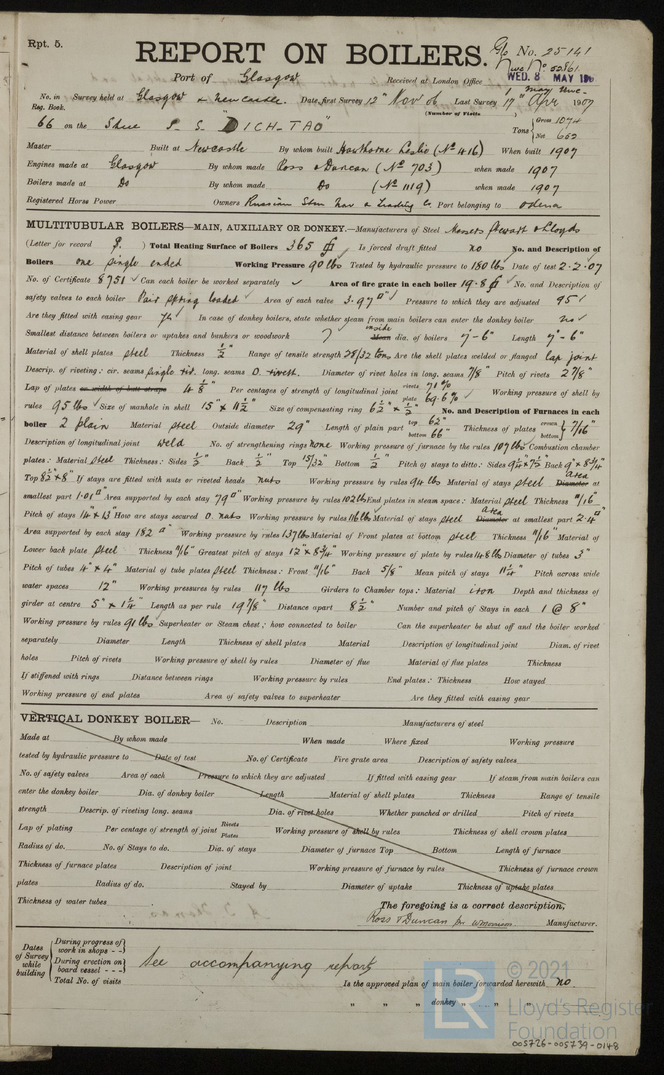 Rpt. 5.
REPORT ON BOILERS.
No. 25141
Port of Glasgow
Received at London Office WED. 8 MAY
No. in Reg. Book. Survey held at Glasgow & Newcastle. Date, first Survey 12th Nov 06 Last Survey 17th Apr 1907
(Number of Visits
66 on the S. S. "DICH-TAO"
Tons Gross 1074 Net 662
Master Built at Newcastle By whom built Hawthorne Leslie (No 416) When built 1907
Engines made at Glasgow By whom made Ross & Duncan (No 703) when made 1907
Boilers made at Do By whom made Do (No 1119) when made 1907
Registered Horse Power Owners Russian Stm Nav & Trading Co Port belonging to Odessa
MULTITUBULAR BOILERS—MAIN, AUXILIARY OR DONKEY.—Manufacturers of Steel Messrs Stewart & Lloyds
(Letter for record ) Total Heating Surface of Boilers 365 Is forced draft fitted no No. and Description of
Boilers one single ended Working Pressure 90 lbs Tested by hydraulic pressure to 180 lbs Date of test 2.2.07
No. of Certificate 8751 Can each boiler be worked separately ✓ Area of fire grate in each boiler 19.8 No. and Description of
safety valves to each boiler Pair spring loaded Area of each valve 3.97" Pressure to which they are adjusted 95
Are they fitted with easing gear In case of donkey boilers, state whether steam from main boilers can enter the donkey boiler no
Smallest distance between boilers or uptakes and bunkers or woodwork inside Mean dia. of boilers 7'-6" Length 7'-6"
Material of shell plates steel Thickness 1/2" Range of tensile strength 28/32 tons Are the shell plates welded or flanged lap joint
Descrip. of riveting: cir. seams single riv. long. seams D. rivett. Diameter of rivet holes in long. seams 7/8" Pitch of rivets 2 7/8"
Lap of plates or width of butt straps 4 1/8" Per centages of strength of longitudinal joint rivets 71% plate 69.6% Working pressure of shell by
rules 95 lbs Size of manhole in shell 15" x 11 1/2" Size of compensating ring 6 1/2" x 1/2" No. and Description of Furnaces in each
boiler 2 plain Material steel Outside diameter 29" Length of plain part top 62" bottom 66" Thickness of plates crown bottom 7/16"
Description of longitudinal joint weld No. of strengthening rings none Working pressure of furnace by the rules 107 lbs Combustion chamber
plates: Material steel Thickness: Sides 1/2" Back 1/2" Top 15/32" Bottom 1/2" Pitch of stays to ditto: Sides 9 1/4" x 7 1/2" Back 9" x 8 3/4"
Top 8 1/2" x 8" If stays are fitted with nuts or riveted heads nuts Working pressure by rules 94 lbs Material of stays steel Diameter Area at
smallest part 1.01" Area supported by each stay 79" Working pressure by rules 102 lbs End plates in steam space: Material steel Thickness 11/16"
Pitch of stays 14" x 13" How are stays secured D. nuts Working pressure by rules 116 lbs Material of stays steel Diameter Area at smallest part 2.4"
Area supported by each stay 182" Working pressure by rules 137 lbs Material of Front plates at bottom steel Thickness 11/16" Material of
Lower back plate steel Thickness 11/16" Greatest pitch of stays 12" x 8 3/4" Working pressure of plate by rules 148 lbs Diameter of tubes 3"
Pitch of tubes 4" x 4" Material of tube plates steel Thickness: Front 11/16" Back 5/8" Mean pitch of stays 11 1/4" Pitch across wide
water spaces 12" Working pressures by rules 117 lbs Girders to Chamber tops: Material iron Depth and thickness of
girder at centre 5" x 1 1/4" Length as per rule 19 7/8" Distance apart 8 1/2" Number and pitch of Stays in each 1 @ 8"
Working pressure by rules 91 lbs Superheater or Steam chest; how connected to boiler Can the superheater be shut off and the boiler worked
separately Diameter Length Thickness of shell plates Material Description of longitudinal joint Diam. of rivet
holes Pitch of rivets Working pressure of shell by rules Diameter of flue Material of flue plates Thickness
If stiffened with rings Distance between rings Working pressure by rules End plates: Thickness How stayed
Working pressure of end plates Area of safety valves to superheater Are they fitted with easing gear
VERTICAL DONKEY BOILER— No. Description Manufacturers of steel
Made at By whom made When made Where fixed Working pressure
tested by hydraulic pressure to Date of test No. of Certificate Fire grate area Description of safety valves
No. of safety valves Area of each Pressure to which they are adjusted If fitted with easing gear If steam from main boilers can
enter the donkey boiler Dia. of donkey boiler Length Material of shell plates Thickness Range of tensile
strength Descrip. of riveting long. seams Dia. of rivet holes Whether punched or drilled Pitch of rivets
Lap of plating Per centage of strength of joint Rivets Plates Working pressure of shell by rules Thickness of shell crown plates
Radius of do. No. of Stays to do. Dia. of stays Diameter of furnace Top Bottom Length of furnace
Thickness of furnace plates Description of joint Working pressure of furnace by rules Thickness of furnace crown
plates Radius of do. Stayed by Diameter of uptake Thickness of uptake plates
Thickness of water tubes
The foregoing is a correct description,
Ross & Duncan Manufacturer.
Dates of Survey while building
During progress of work in shops - -
During erection on board vessel - - -
Total No. of visits
See accompanying reports
Is the approved plan of main boiler forwarded herewith no
" " " donkey " " "
© 2021
LR
Lloyd's Register
Foundation
005726-005739-0148